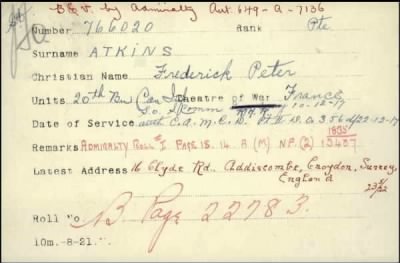 B & V. by Admiralty Aut. 649-A-7136
Number 766020 Rank Pte
Surname ATKINS
Christian Name Frederick Peter
Units 20th Bn Can Inf Theatre of War France
10-12-17
Date of Service with C.A.M.C. 22-12-17
Remarks ADMIRALTY ROLL # 1. PAGE 15. 14. B (M) N.F. (2) 13437
Latest Address 16 Clyde Rd., Addiscombe, Croydon, Surrey,
England
Roll No B. Page 22783.
10m.-8-21.